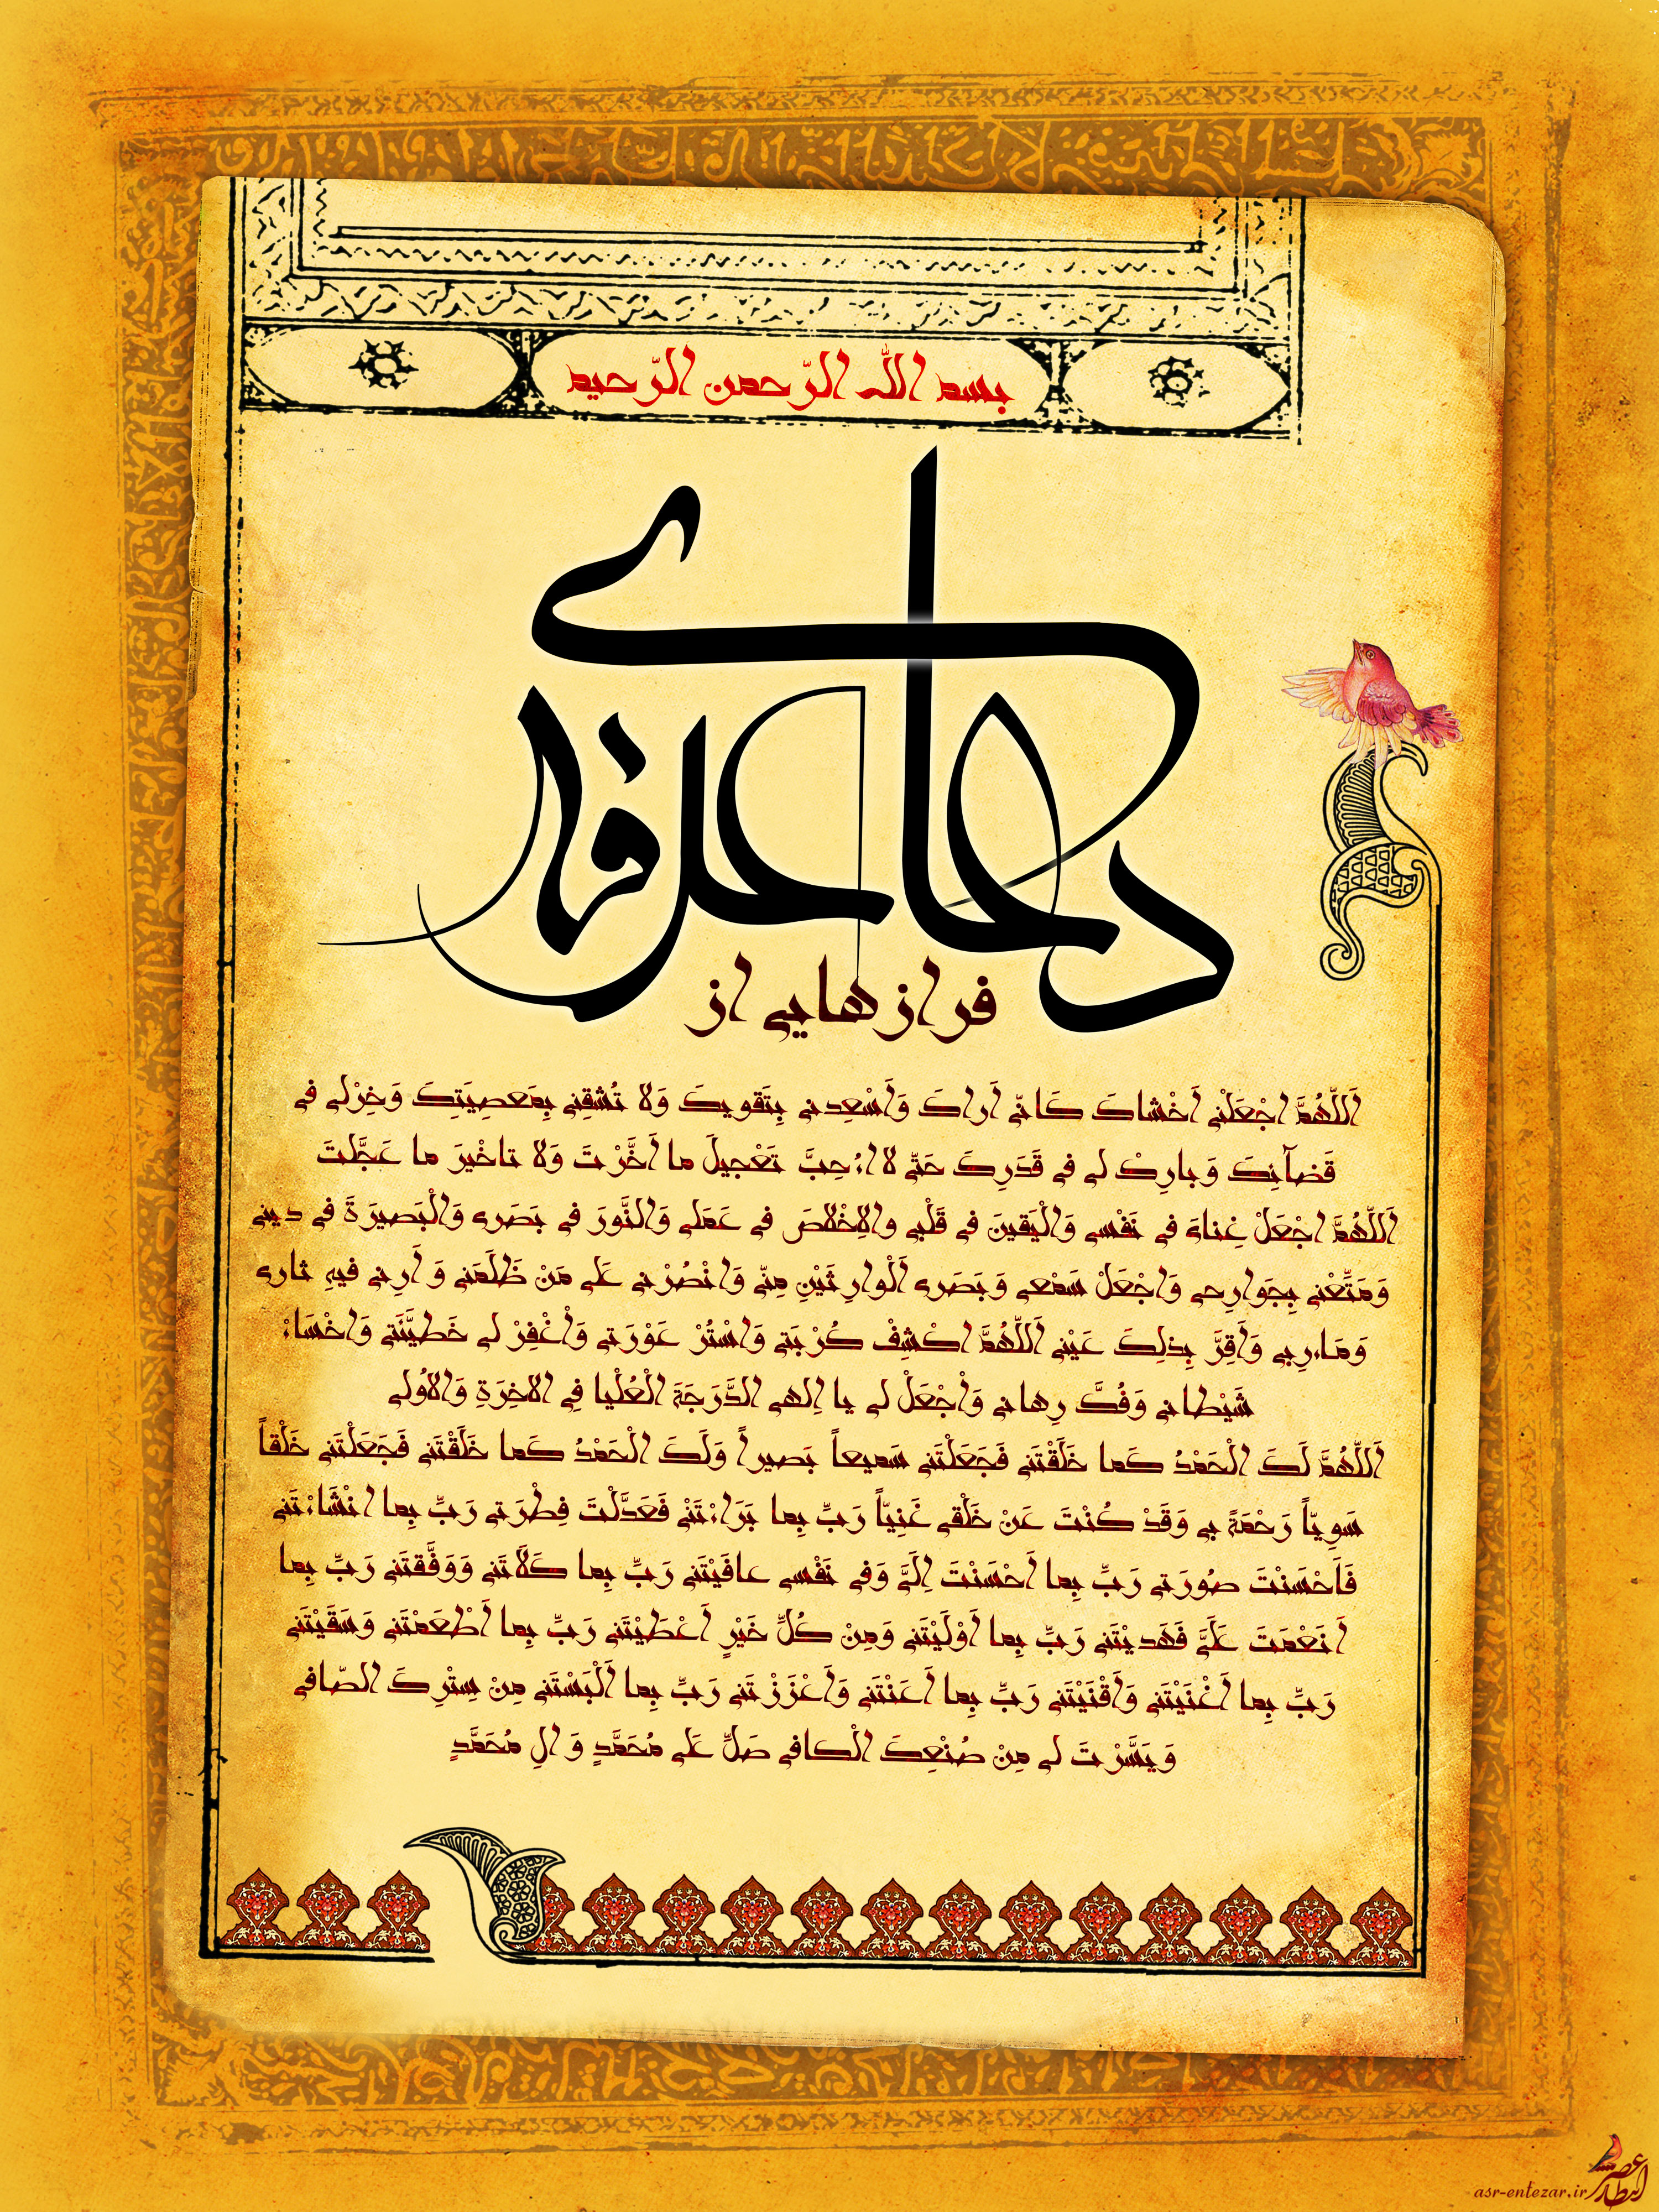 بسم الله الرّحمن الرّحیم
دعای عرفه
فرازهایی از
اَللّهُمَّ اجْعَلْنی اَخْشاکَ کَانّی اَراکَ وَاَسْعِدنی بِتَقویکَ وَلا تُشقِنی بِمَعصِیَتِکَ وَخِرْلی فی
قَضآئِکَ وَبارِکْ لی فی قَدَرِکَ حَتّی لا اءُحِبَّ تَعْجیلَ ما اَخَّرْتَ وَلا تاخْیرَ ما عَجَّلتَ
اَللّهُمَّ اجْعَلْ غِنایَ فی نَفْسی وَالْیَقینَ فی قَلْبی والاِخْلاصَ فی عَمَلی وَالنَّورَ فی بَصَری وَالْبَصیرَةَ فی دینی
وَمَتِّعْنی بِجَوارِحی وَاجْعَلْ سَمْعی وَبَصَری اَلْوارِثَیْنِ مِنّی وَانْصُرْنی عَلی مَنْ ظَلَمَنی وَاَرِنی فیهِ ثاری
وَمَاءرِبی وَاَقِرَّ بِذلِکَ عَیْنی اَللّهُمَّ اکْشِفْ کُرْبَتی وَاسْتُرْ عَوْرَتی وَاْغْفِرْ لی خَطیَّئَتی وَاخْسَاءْ
شَیْطانی وَفُکَّ رِهانی وَاْجْعَلْ لی یا اِلهی الدَّرَجَةَ الْعُلْیا فِی الاخِرَةِ وَالاوُلی
اَللّهُمَّ لَکَ الْحَمْدُ کَما خَلَقْتَنی فَجَعَلْتَنی سَمیعاً بَصیراً وَلَکَ الْحَمْدُ کَما خَلَقْتَنی فَجَعَلْتَنی خَلْقاً
سَوِیّاً رَحْمَةً بی وَقَدْ کُنْتَ عَنْ خَلْقی غَنِیّاً رَبِّ بِما بَرَاءْتَنْی فَعَدَّلْتَ فِطْرَتی رَبِّ بِما انْشَاءْتَنی
فَاَحْسَنْتَ صُورَتی رَبِّ بِما اَحْسَنْتَ اِلَیَّ وَفی نَفْسی عافَیْتَنی رَبِّ بِما کَلَاتَنی وَوَفَّقتَنی رَبِّ بِما
اَنَعْمَتَ عَلَیَّ فَهَدیْتَنی رَبِّ بِما اَوْلَیْتَنی وَمِنْ کُلِّ خَیْرٍ اَعْطَیْتَنی رَبِّ بِما اَطْعَمْتَنی وَسَقَیْتَنی
رَبِّ بِما اَغْنَیْتَنی وَاَقْنَیْتَنی رَبِّ بِما اَعَنْتَنی وَاَعْزَزْتَنی رَبِّ بِما اَلْبَسْتَنی مِنْ سِتْرِکَ الصّافی
وَیَسَّرْتَ لی مِنْ صُنْعِکَ الْکافی صَلِّ عَلی مُحَمَّدٍ وَالِ مُحَمَّدٍ
عصر انتظار
asr-entezar.ir